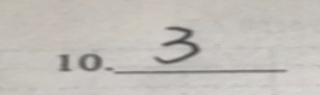 10. 3